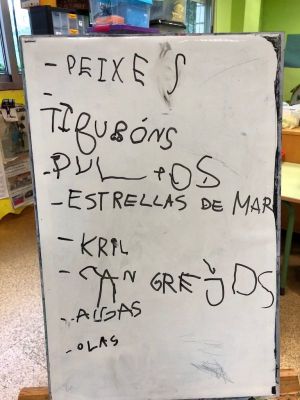 - PEIXES
-
TIBUBÓNS
- PUL + OS
- ESTRELLAS DE MAR
- KRIL
- CAN GREJOS
- ALGAS
- OLAS